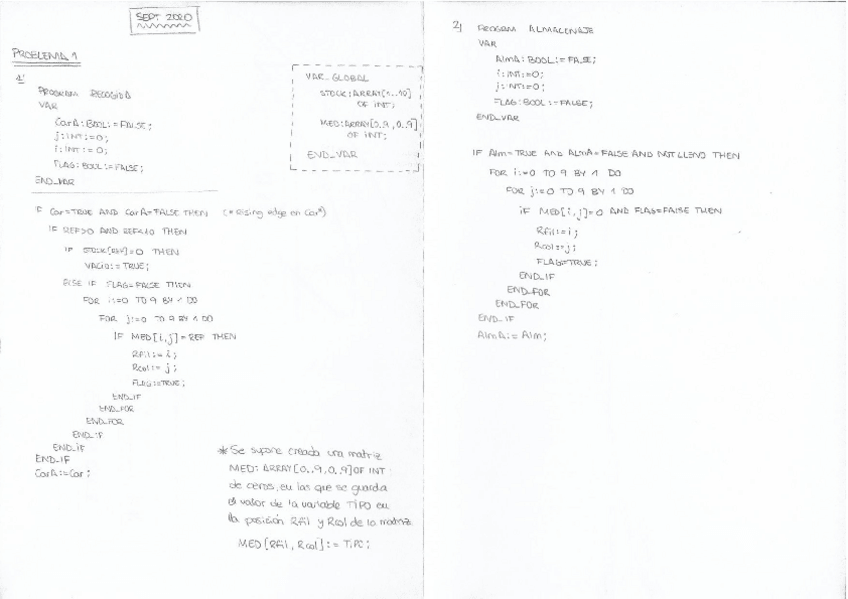 SEPT 2020
PROBLEMA 1
1
PROGRAM RECOGIDA
VAR
CarA: BOOL:= FALSE;
j: INT:= 0;
i: INT:= 0;
FLAG: BOOL:= FALSE;
END_VAR
VAR_GLOBAL
STOCK: ARRAY[1..10]
OF INT;
MED: ARRAY[0..9, 0..9]
OF INT;
END_VAR
IF Car=TRUE AND CarA=FALSE THEN (* Rising edge on Car*)
IF REF>0 AND REF<10 THEN
IF STOCK[REF]=0 THEN
VACIO:= TRUE;
ELSE IF FLAG=FALSE THEN
FOR i:=0 TO 9 BY 1 DO
FOR j:=0 TO 9 BY 1 DO
IF MED[i,j]=REF THEN
Rfil:= i;
Rcol:= j;
FLAG:=TRUE;
END_IF
END_FOR
END_FOR
END_IF
END_IF
END_IF
CarA:=Car;
* Se supone creada una matriz
MED: ARRAY[0..9,0..9] OF INT
de ceros, en las que se guarda
el valor de la variable TIPO en
la posición Rfil y Rcol de la matriz.
MED[Rfil, Rcol]:= TIPO;
2
PROGRAM ALMACENAJE
VAR
AlmA: BOOL:= FALSE;
i: INT:=0;
j: INT:=0;
FLAG: BOOL:= FALSE;
END_VAR
IF Alm=TRUE AND AlmA=FALSE AND NOT LLENO THEN
FOR i:=0 TO 9 BY 1 DO
FOR j:=0 TO 9 BY 1 DO
IF MED[i,j]=0 AND FLAG=FALSE THEN
Rfil:=i;
Rcol:=j;
FLAG=TRUE;
END_IF
END_FOR
END_FOR
END_IF
AlmA:= Alm;